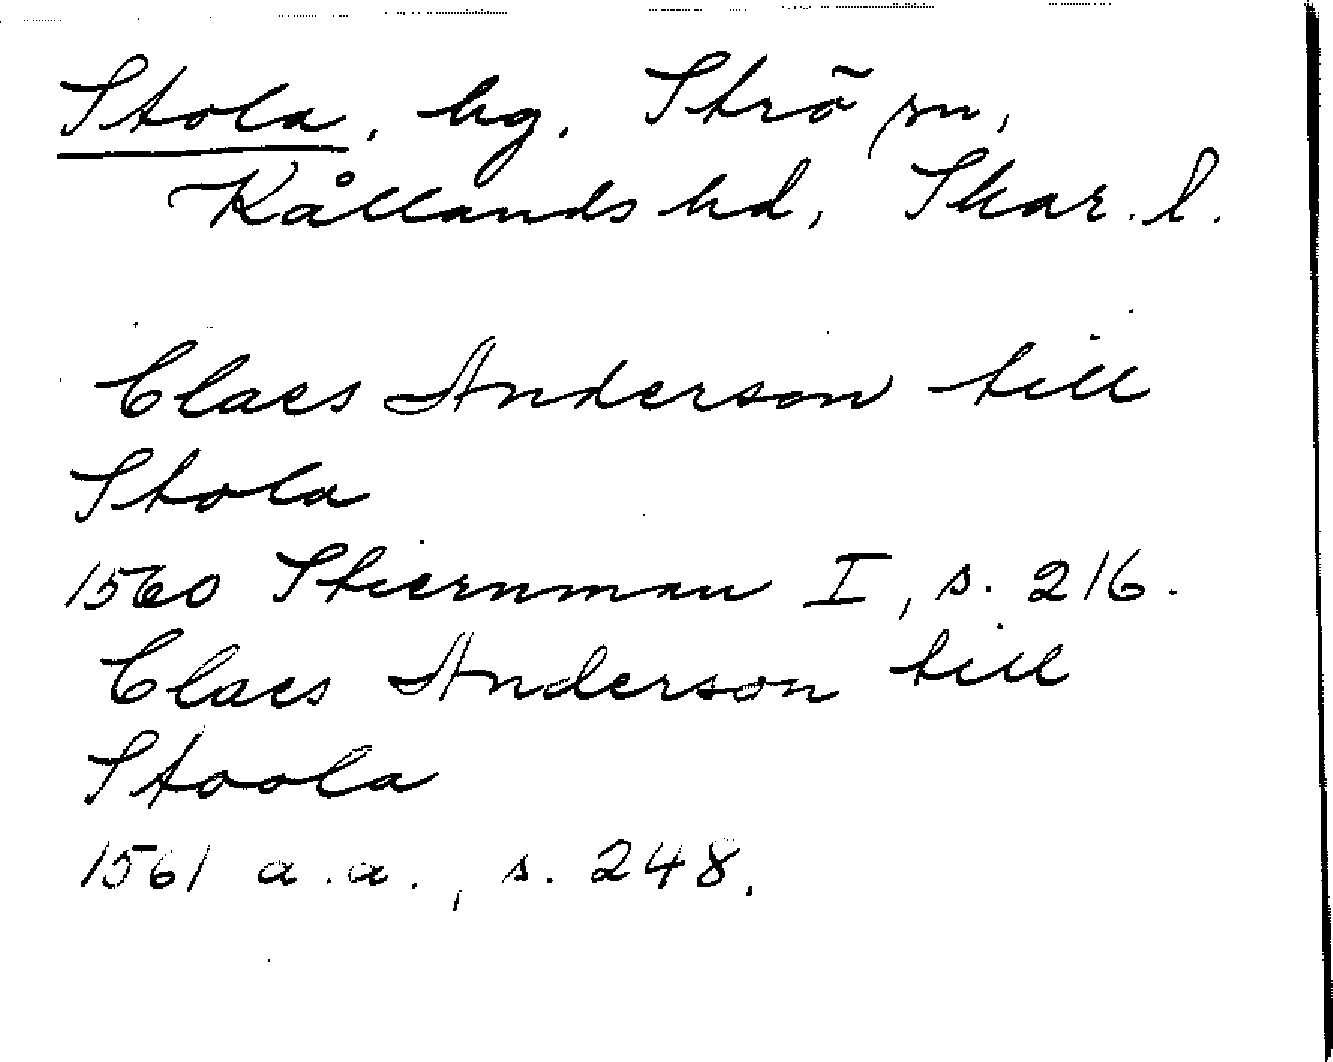 Stola, hg. Strö sn,
Kållands hd, Skar. l.
Claes Anderson till
Stola
1560 Stiernman I, s. 216.
Claes Anderson till
Stoola
1561 a.a., s. 248.